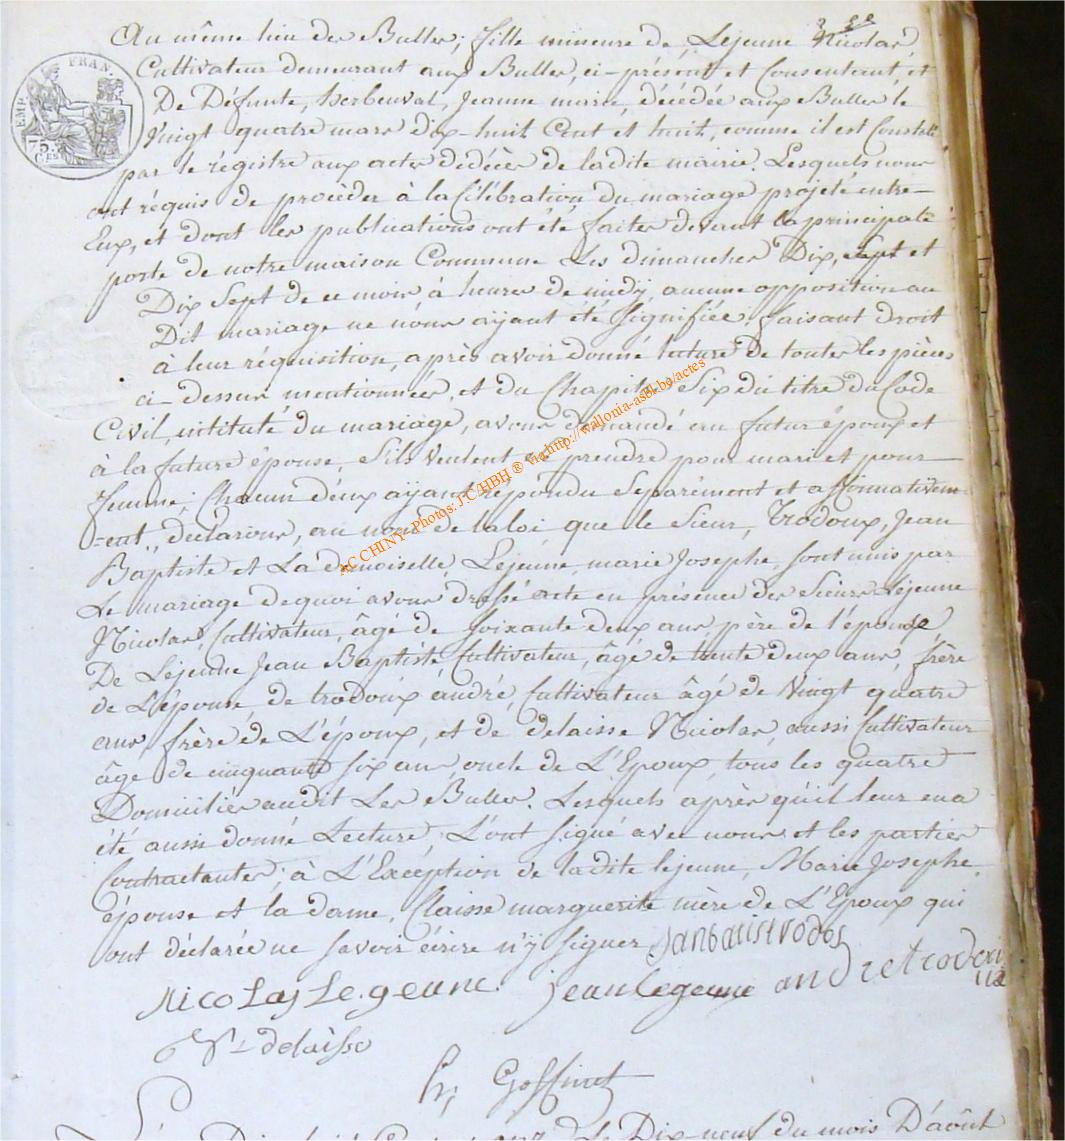 Au même lieu des Bulles, fille mineure de, Lejeune Nicolas,
Cultivateur demeurant aux Bulles, ci-présent et Consentant, et
De Défunte, herbeuval, Jeanne marie, décédée aux Bulles le
Vingt quatre mars dix-huit Cent et huit, comme il est Constaté
par le régistre aux actes dedécès de ladite mairie. Lesquels nous
ont réquis de procèder à la Célébration du mariage projeté entre-
Eux, et dont les publications ont été faites devant la principale
porte de notre maison Commune Les dimanches Dix, Sept et
Dix Sept de ce mois à heures de midy, aucune opposition au
Dit mariage ne nous ayant été Signifiée, faisant droit
à leur réquisition, après avoir donné lecture de toutes les pièces
ci-dessus mentionnées, et du Chapitre Six du titre du Code
Civil, intitulé du mariage, avons demandé au futur époux et
à la future épouse, S'ils veulent se prendre pour mari et pour
femme; Chacun d'eux ayant répondu Séparément et affirmativem-
-ent, déclarons, au nom de la loi que le Sieur, Trodoux, Jean
Baptiste et La demoiselle Lejeune, marie Josephe, Sont unis par
Le mariage de quoi avons dréssé acte en présence des Sieurs Lejeune
Nicolas, Cultivateur, âgé de Soixante deux ans, père de l'épouse,
De Lejeune Jean Baptiste Cultivateur, âgé de trente deux ans, frère
de L'épouse, de trodoux andré, Cultivateur âgé de Vingt quatre
ans, frère de L'époux, et de delaisse Nicolas, aussi Cultivateur
âgé de cinquante six ans oncle de L'Epoux, tous les quatre
Domiciliés audit Les Bulles. Lesquels après qu'il leur en a
été aussi donné Lecture, L'ont Signé avec nous et les parties
Contractantes, à L'Exception de ladite lejeune, Marie Josephe,
épouse et la dame, Claisse marguerite mère de L'Epoux qui
ont déclarée ne savoir écrire n'y Signer
Nicolas Legeune jean legeune andre trodoux
delaisse
Goffinet
Dix-neuf du mois D'août
EMP. FRAN.
75.
C.ES
AC CHINY - Photos: J.C/HBH ® via http://wallonia-asbl.be/actes